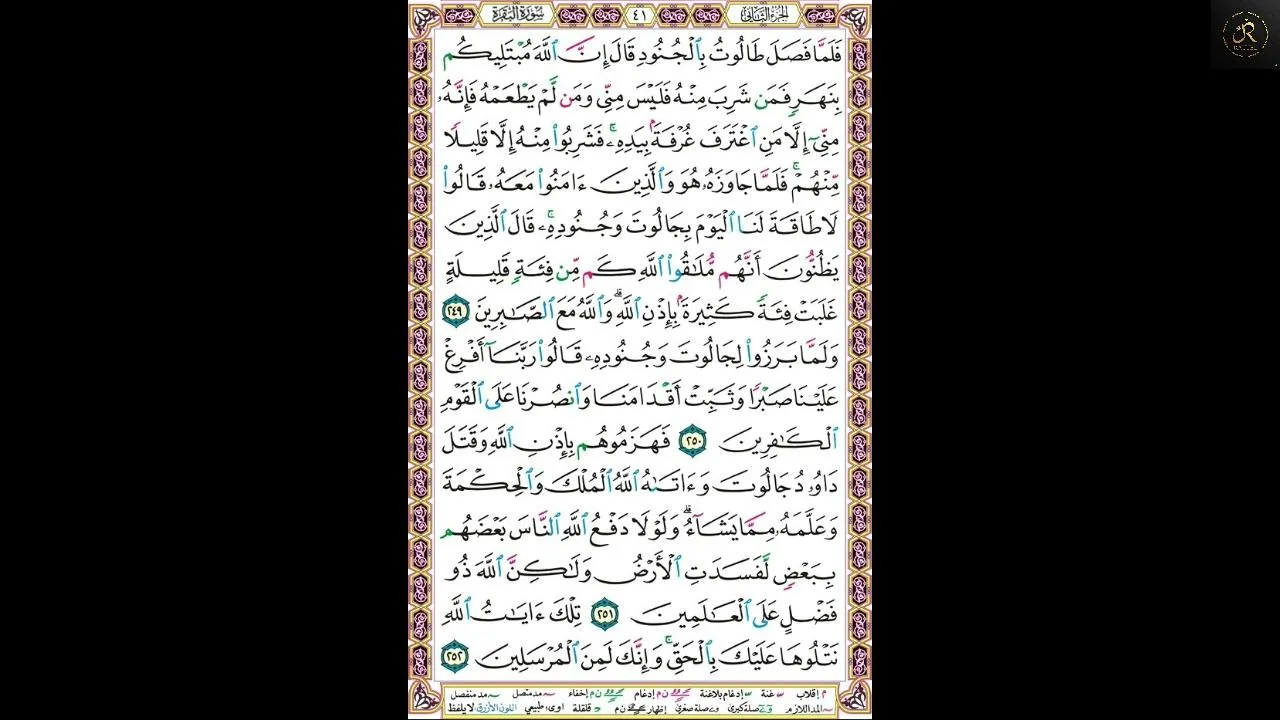 الجزء الثاني ٤١ سورة البقرة
فَلَمَّا فَصَلَ طَالُوتُ بِٱلۡجُنُودِ قَالَ إِنَّ ٱللَّهَ مُبۡتَلِيكُم
بِنَهَرٖ فَمَن شَرِبَ مِنۡهُ فَلَيۡسَ مِنِّي وَمَن لَّمۡ يَطۡعَمۡهُ فَإِنَّهُۥ
مِنِّيٓ إِلَّا مَنِ ٱغۡتَرَفَ غُرۡفَةَۢ بِيَدِهِۦۚ فَشَرِبُواْ مِنۡهُ إِلَّا قَلِيلٗا
مِّنۡهُمۡۚ فَلَمَّا جَاوَزَهُۥ هُوَ وَٱلَّذِينَ ءَامَنُواْ مَعَهُۥ قَالُواْ
لَا طَاقَةَ لَنَا ٱلۡيَوۡمَ بِجَالُوتَ وَجُنُودِهِۦۚ قَالَ ٱلَّذِينَ
يَظُنُّونَ أَنَّهُم مُّلَٰقُواْ ٱللَّهِ كَم مِّن فِئَةٖ قَلِيلَةٍ
غَلَبَتۡ فِئَةٗ كَثِيرَةَۢ بِإِذۡنِ ٱللَّهِۗ وَٱللَّهُ مَعَ ٱلصَّٰبِرِينَ ٢٤٩
وَلَمَّا بَرَزُواْ لِجَالُوتَ وَجُنُودِهِۦ قَالُواْ رَبَّنَآ أَفۡرِغۡ
عَلَيۡنَا صَبۡرٗا وَثَبِّتۡ أَقۡدَامَنَا وَٱنصُرۡنَا عَلَى ٱلۡقَوۡمِ
ٱلۡكَٰفِرِينَ ٢٥٠ فَهَزَمُوهُم بِإِذۡنِ ٱللَّهِ وَقَتَلَ
دَاوُۥدُ جَالُوتَ وَءَاتَىٰهُ ٱللَّهُ ٱلۡمُلۡكَ وَٱلۡحِكۡمَةَ
وَعَلَّمَهُۥ مِمَّا يَشَآءُۗ وَلَوۡلَا دَفۡعُ ٱللَّهِ ٱلنَّاسَ بَعۡضَهُم
بِبَعۡضٖ لَّفَسَدَتِ ٱلۡأَرۡضُ وَلَٰكِنَّ ٱللَّهَ ذُو
فَضۡلٍ عَلَى ٱلۡعَٰلَمِينَ ٢٥١ تِلۡكَ ءَايَٰتُ ٱللَّهِ
نَتۡلُوهَا عَلَيۡكَ بِٱلۡحَقِّۚ وَإِنَّكَ لَمِنَ ٱلۡمُرۡسَلِينَ ٢٥٢
م إقلاب غنة إدغام بلاغنة ن م إدغام ن م إخفاء مد متصل مد منفصل
المد اللازم صلة كبرى صلة صغرى إظهار ن م قلقلة اوى طبيعي اللون الأزرق لا يلفظ